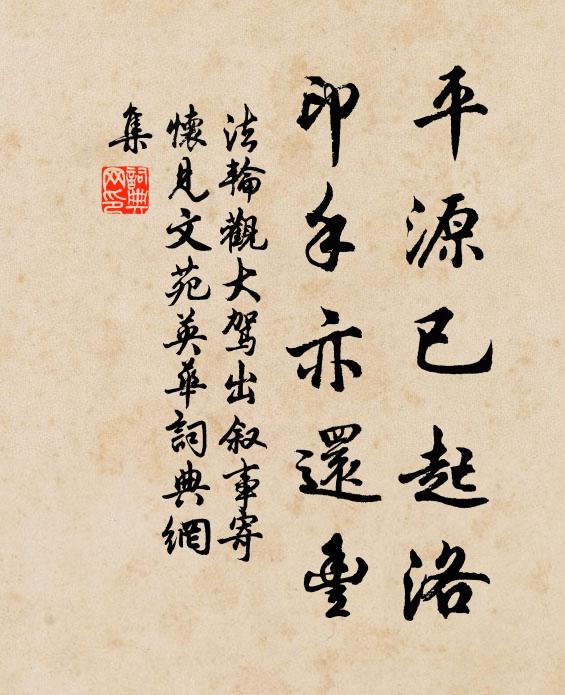 平源已起洛
印手亦還豐
法輪觀大駕出叙事寄
懷見文苑英華詞典網
集
詞典
网印